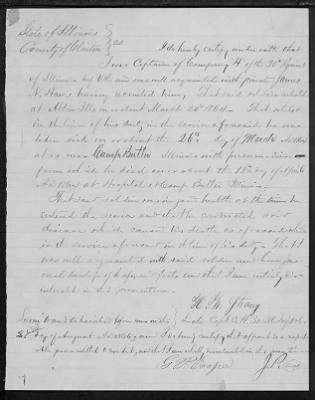 State of Illinois
County of Clinton } SS
I do hereby certify under oath that
I was Captain of Company "H" of the 30th Regiment
of Illinois Inf Vol and was well acquainted with private James
A. having recruited him, That said soldier enlisted
at Alton Illinois about March 20th 1864. That whilst
in the line of his duty in the service aforesaid he was
taken sick on or about the 26th day of March AD 1864
at or near Camp Butler Illinois with pneumonia
from which he died on or about the day of April
AD 1864 at Hospital at Camp Butler Illinois.
That said soldier was in good health at the time he
entered the service and that he contracted said
disease which caused his death as aforesaid while
in the service aforesaid in the line of his duty. That I
was well acquainted with said soldier and have personal
knowledge of the aforesaid facts and that I am entirely disinterested
in the prosecution.
H. M. Strong
Sworn to and subscribed before me on this } Late Capt Co H 30 Ill Inf Vols.
day of August AD 1886, and I do hereby certify that affiant is a reputable
G. P. Cooper J.P.